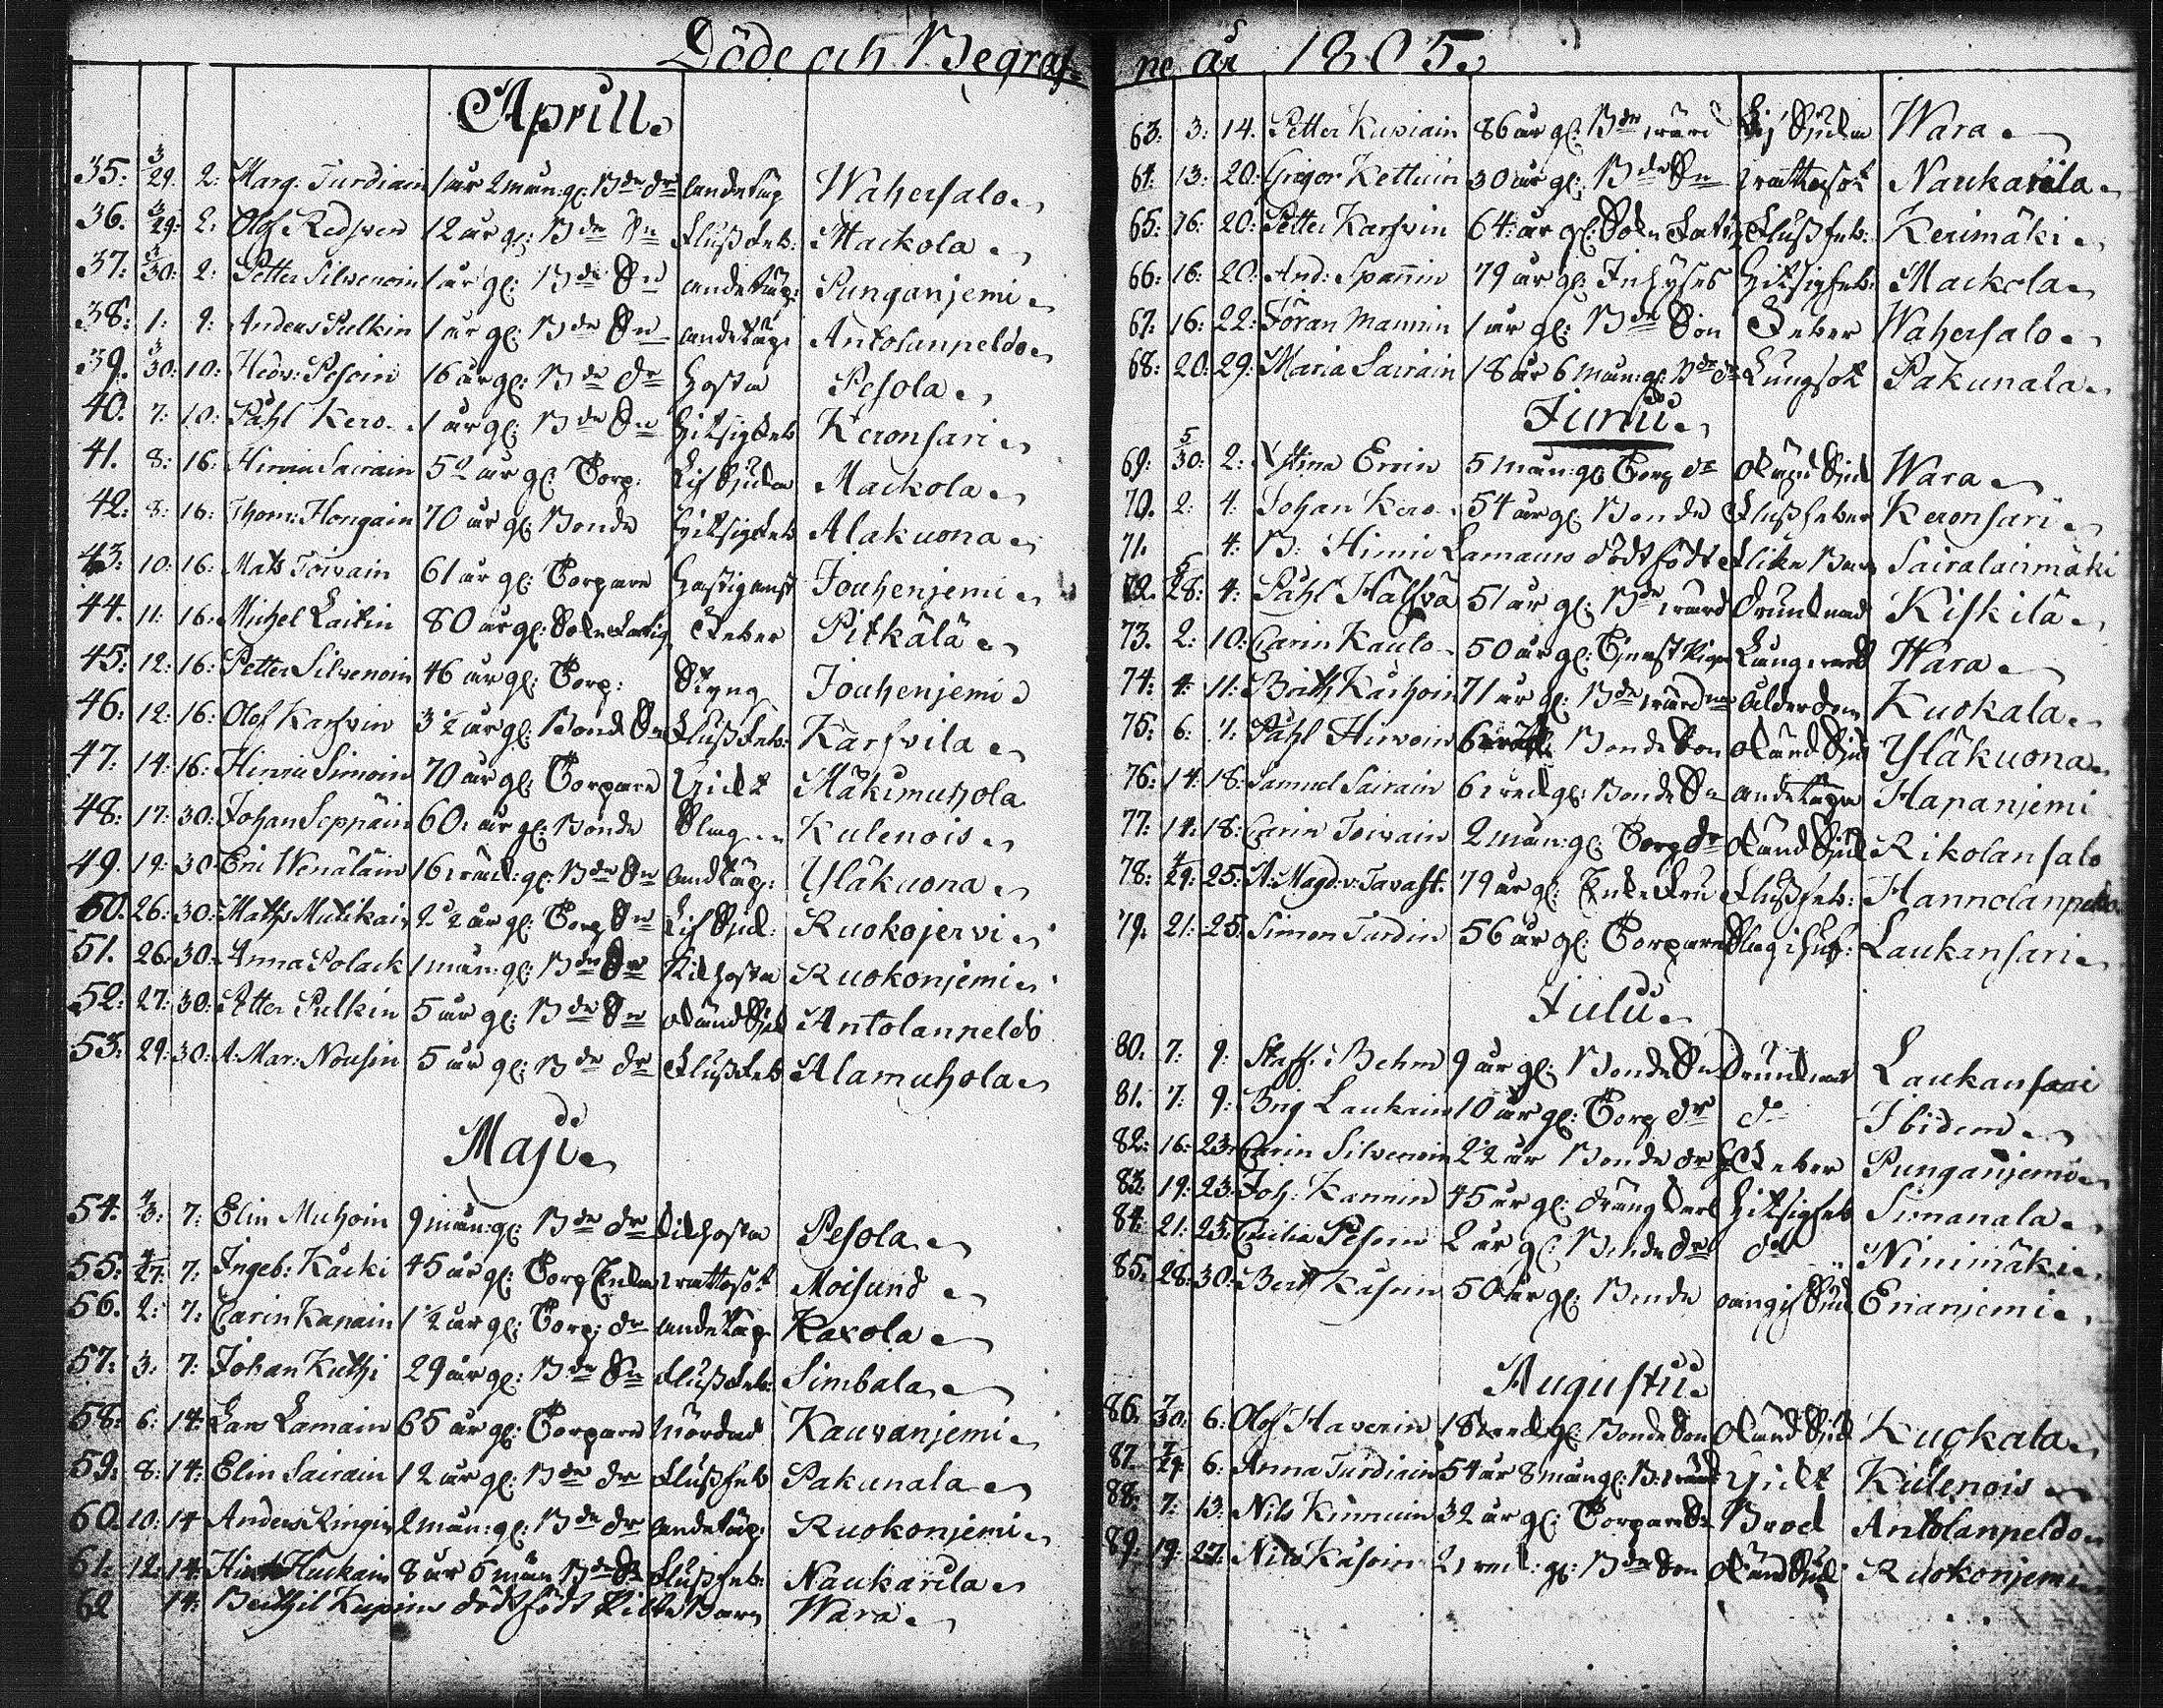 Döde och Begraf-
ne år 1805.
Aprill
35: 3/29: 2: Marg. Turdiain 1 år 2 mån: gl: Bde dr andetäp Wahersalo
36. 3/29: 2: Olof Redsven 12 år gl: Bde Sn Flußfeb: Mackola
37: 3/30: 2: Petter Silvenoin 1 år gl: Bde Sn andetäp: Punganjemi
38: 1: 9: Anders Pulkin 1 år gl: Bde Sn andetäp Antolanpeldo
39. 3/30: 10: Hedv: Pesoin 16 år gl: Bde dr Hosta Pesola
40. 7: 10: Påhl Kero 1 år gl: Bde Sn Hitsigfeb Keronsari
41. 8: 16: Sairain 52 år gl: Torp: Lifsjukn Mackola
42: 8: 16: Thom: Hongain 70 år gl: Bonde Hitsigfeb Alakuona
43: 10: 16: Mats Toivain 61 år gl: Torpare Jouhenjemi
44. 11: 16: Michel Laitin 80 år gl: Feber Pitkälä
45: 12: 16: Petter Silvenoin 46 år gl: Torp: Styng Jouhenjemi
46: 12: 16: Olof Karsvin 3 1/2 år gl: Bond Sn Flußfeb: Karsvila
47: 14: 16: Simoin 70 år gl: Torpare Gickt Mäkimuhola
48: 17: 30: Johan Seppäin 60: år gl: Bonde Slag Kulenois
49. 19: 30: Eric Wenäläin 16 veck: gl: Bde Sn andtäp: Yläkuona
50. 26: 30: Maths Mutikain 2 1/2 år gl: Torp Sn Lifsjuk: Ruokojervi
51. 26: 30: Anna Polack 1 mån: gl: Bde Dr Kikhosta Ruokonjemi
52: 27: 30: Petter Pulkin 5 år gl: Bde Sn okänd Sjuk Antolanpeldo
53: 29: 30: A: Mar: Nousin 5 år gl: Bde dr Flußfeb Alamuhola
Maji
54: 4/3: 7: Elin Muhoin 9 mån: gl: Bde dr Kikhosta Pesola
55: 4/27: 7: Ingeb: Käcki 45 år gl: Torp Enka vattusot Moisund
56. 2: 7: Carin Kapain 1 1/2 år gl: Torp: dr andetäp Kaxola
57: 3: 7: Johan Kuthi 29 år gl: Bde Sn Flußfeb: Simbala
58: 6: 14: Lars Lamain 65 år gl: Torpare Mördad Kauvanjemi
59: 8: 14: Elin Sairain 12 år gl: Bde dr Flußfeb Pakunala
60. 10: 14 Anders Ringin 2 mån: gl: Bde dr andetäp: Ruokonjemi
61: 12: 14: Huckain 8 år 6 mån Bde Flußfeb: Naukarila
62 14: Berthil Kupins dödfödt Piltebarn Wara
63. 3: 14. Petter Kupiain 86 år gl: Bde värd Lifsjukn Wara
64: 13: 20: Grigor Kettuin 30 år gl: Bde Sn vattusot Naukarila
65: 16: 20: Petter Karsvin 64: år gl: Flußfeb: Kerimäki
66: 16: 20: And: Spannin 79 år gl: Inhyses Hitsigfeb: Mackola
67: 16: 22: Jöran Mannin 1 år gl: Bde Son Feber Wahersalo
68: 20: 29: Maria Sairain 18 år 6 mån: gl: Bde dr Lungsot Pakunala
Junii
69: 5/30: 2: Xstina Eroin 5 mån: gl: Torp dr okänd Sjuk Wara
70. 2: 4: Johan Kero 54 år gl: Bonde Flußfeber Keronsari
71. 4: B: Lamains dödfödt Flickebarn Sairalainmäki
72. 5/28: 4: Påhl Halfva 51 år gl: Bde värd drunknad Kiskilä
73. 2: 10: Carin Kaulo 50 år gl: Tjenst Piga Wara
74: 4: 11: Brith Karhoin 71 år gl: Bde ålderdom Kuokala
75: 6: 11: Påhl Hirvoin 6 Bonde Son okänd Sjuk Yläkuona
76: 14: 18: Samuel Sairain 6 veck gl: Bonde Sn andetäppa Hapanjemi
77: 14: 18: Carin Toivain 2 mån: gl: Torp dr okänd Sjuk Rikolansalo
78: 4/29: 25: A: Magd: v: Tavast: 79 år gl: Enkefru Flußfeb: Hannolanpeldo
79. 21: 25: Simon Turdin 56 år gl: Torpare Laukansari
Julii
80. 7: 9: Staff: Behm 9 år gl: Bonde Sn Drunknat Laukansaari
81. 7: 9: Brig Laukain 10 år gl: Torp dr do Ibidem
82: 16: 23: Carin Silvenoin 22 år Bonde dr Feber Punganjemi
83. 19: 23: Joh: Kannin 45 år gl: drängkarl Hitsigfeb Simanala
84: 21: 23: Cecilia Pesoin 2 år gl: Bonde dr do Ninimäki
85. 28: 30: Berth Käsoin 50 år gl: Bonde Enanjemi
Augustii
86. 7/30: 6: Olof Haverin 18 veck gl: Bonde Son okänd Sjuk Kuokala
87. 7/29: 6: Anna Turdiain 54 år 8 mån gl: B: Gickt Kulenois
88: 7: 13: Nils Kinnuin 32 år gl: Torpare Sn Brock Antolanpeldo
89. 19: 27: Nils Käsoin 2 veck: gl: Bde Son okänd Sjuk Ruokonjemi